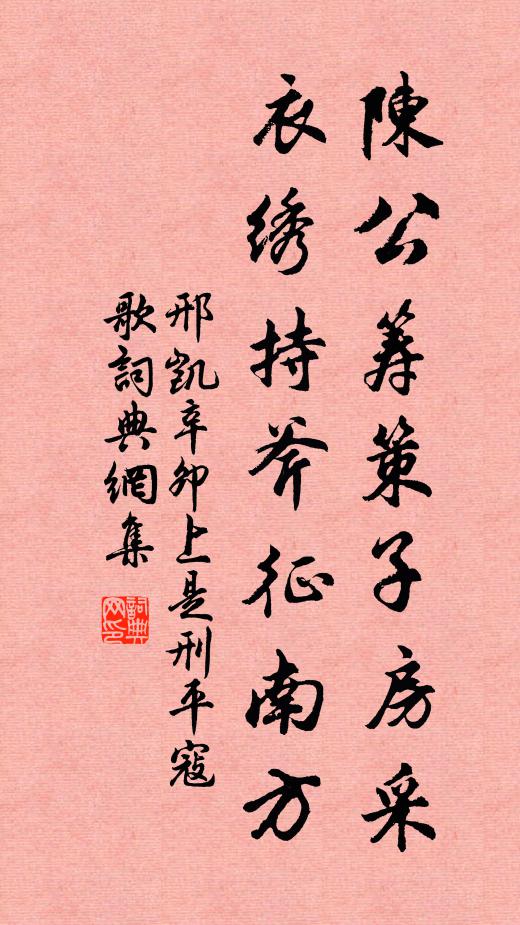 陳公筹策子房采
衣綉持斧征南方
邢凱辛卯上是刑平寇
歌詞典網集
詞典網印